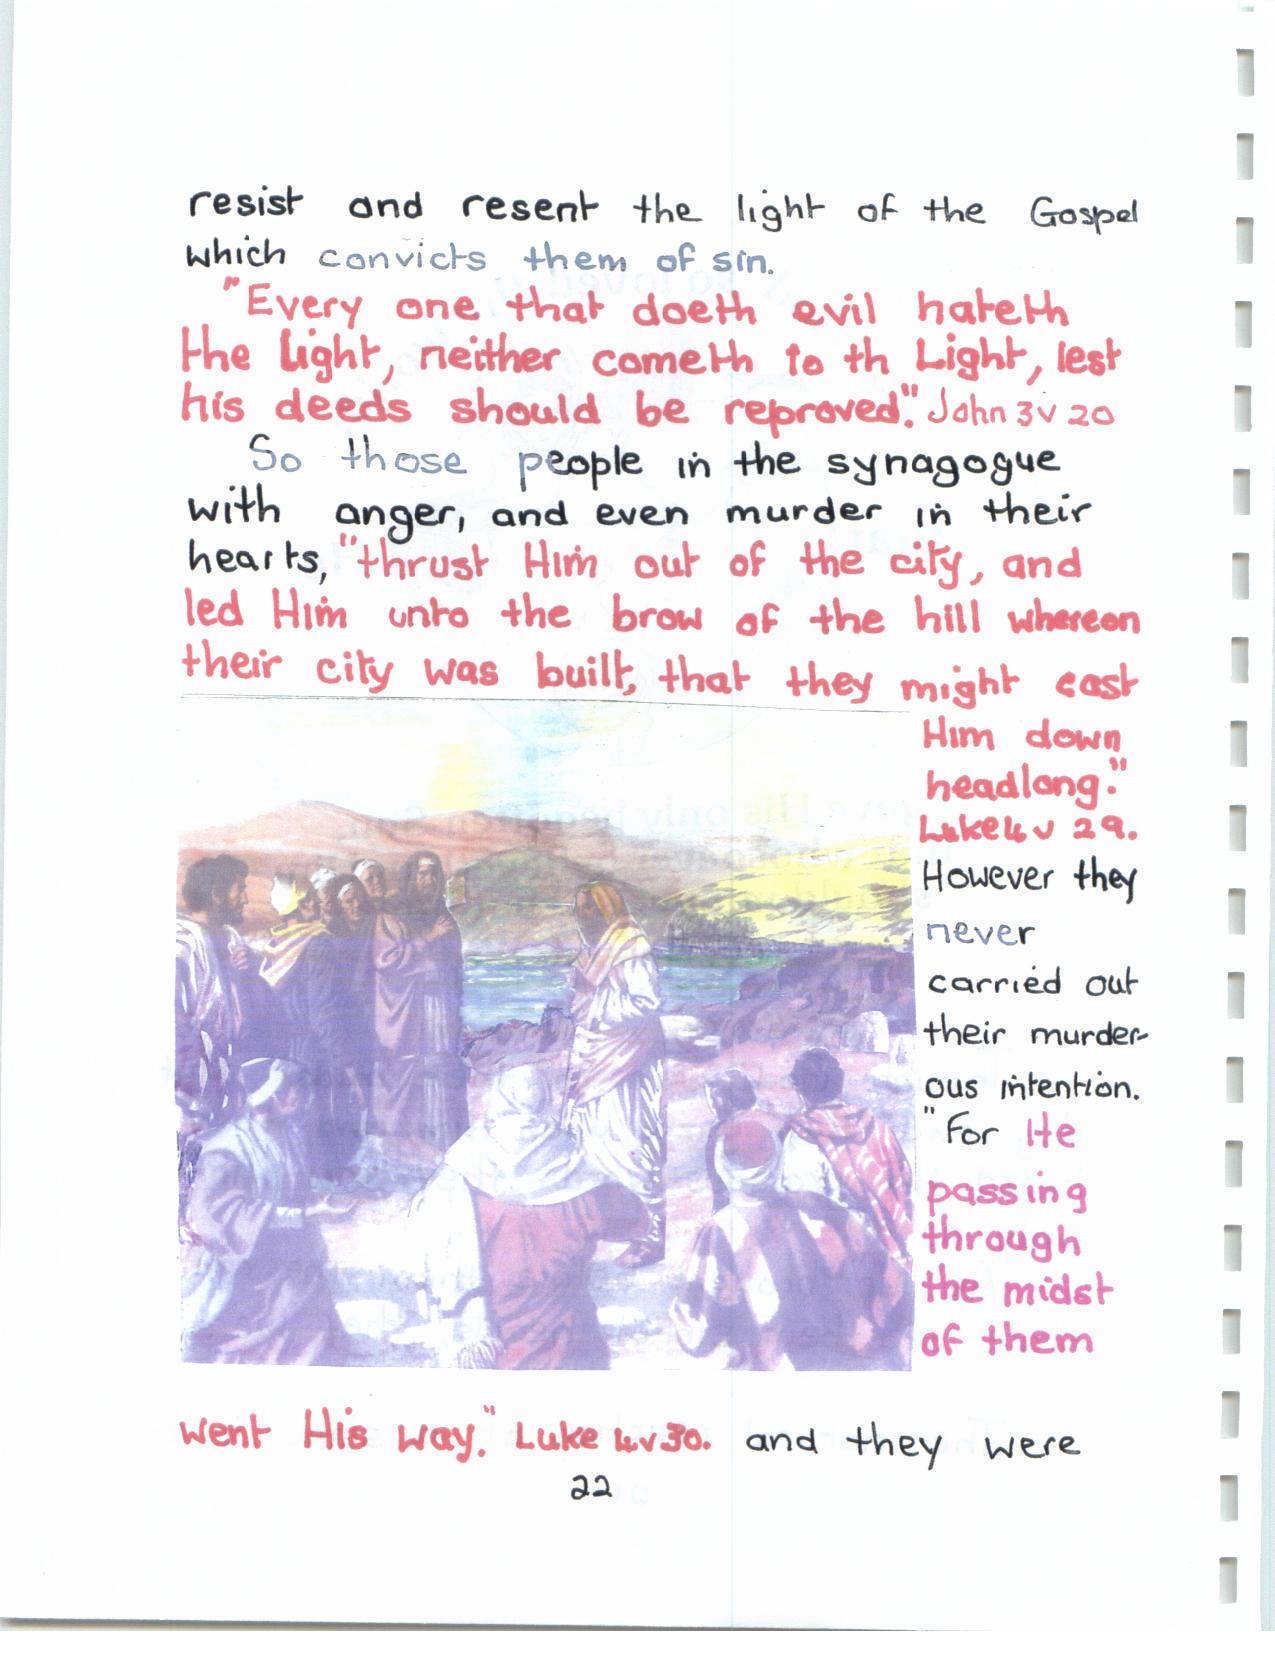 resist and resent the light of the Gospel
which convicts them of sin.
"Every one that doeth evil hateth
the light, neither cometh to th Light, lest
his deeds should be reproved". John 3v 20
So those people in the synagogue
with anger, and even murder in their
hearts, "thrust Him out of the city, and
led Him unto the brow of the hill whereon
their city was built, that they might cast
Him down
headlong."
Luke 4 v 29.
However they
never
carried out
their murder-
ous intention.
"For He
passing
through
the midst
of them
went His way." Luke 4v30. and they were
22